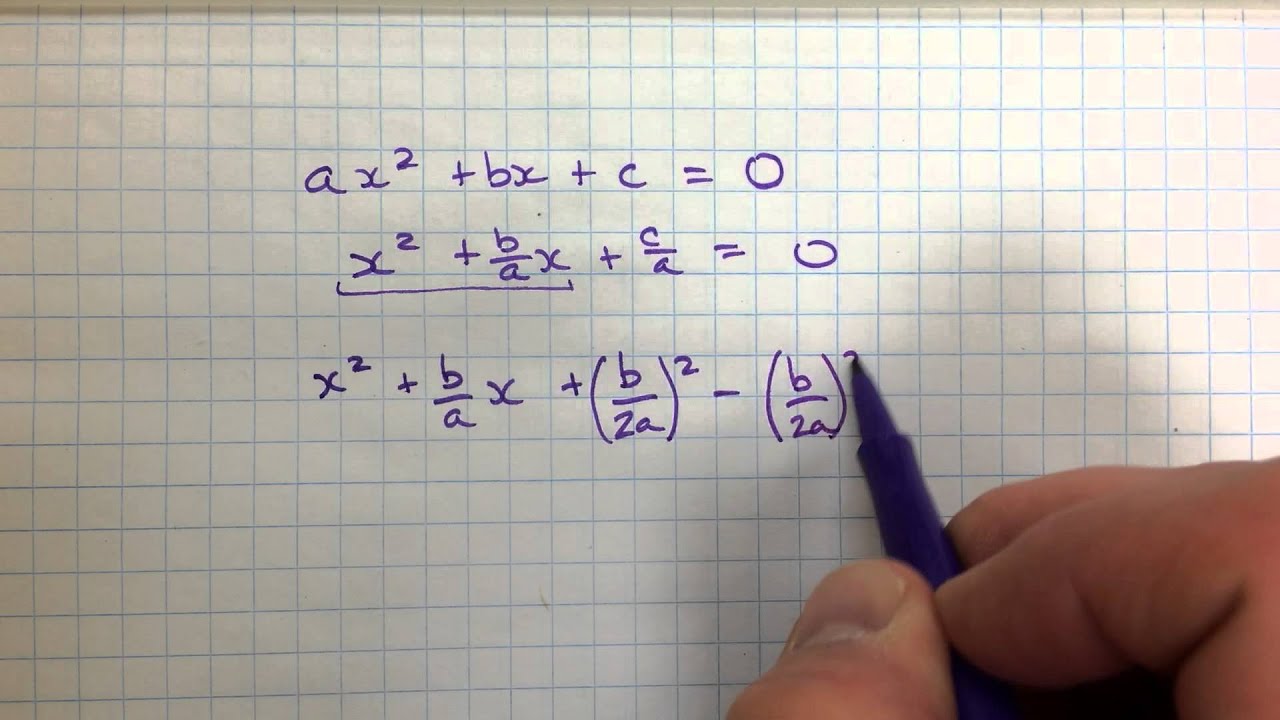 ax² + bx + c = 0
x² + b/a x + c/a = 0
x² + b/a x + (b/2a)² - (b/2a)²